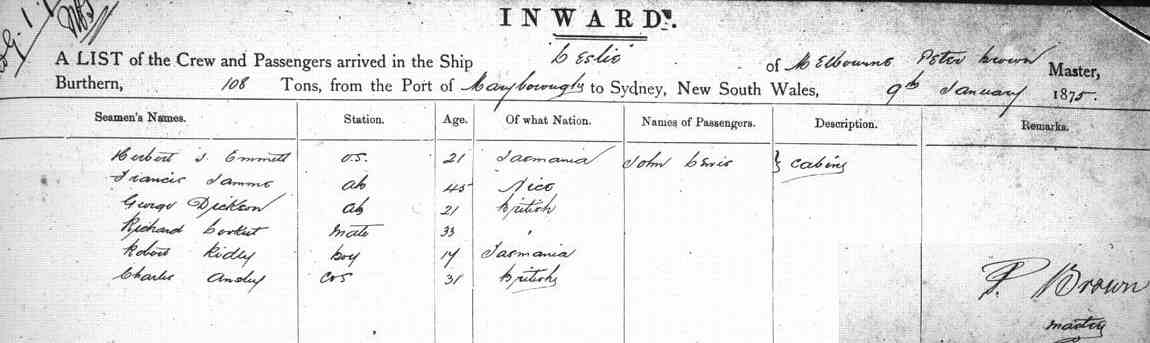 INWARDS.
A LIST of the Crew and Passengers arrived in the Ship Leslie of Melbourne Peter Brown Master,
Burthern, 108 Tons, from the Port of Maryborough to Sydney, New South Wales, 9th January 1875.
Seamen's Names. Station. Age. Of what Nation. Names of Passengers. Description. Remarks.
Herbert J. Emmett o.s. 21 Tasmania John Lewis } Cabin
Francis ab 45 Nice
George Dickson ab 21 British
Richard mate 33 "
Robert Ridley boy 17 Tasmania
Charles Ansley 31 British
P. Brown
master